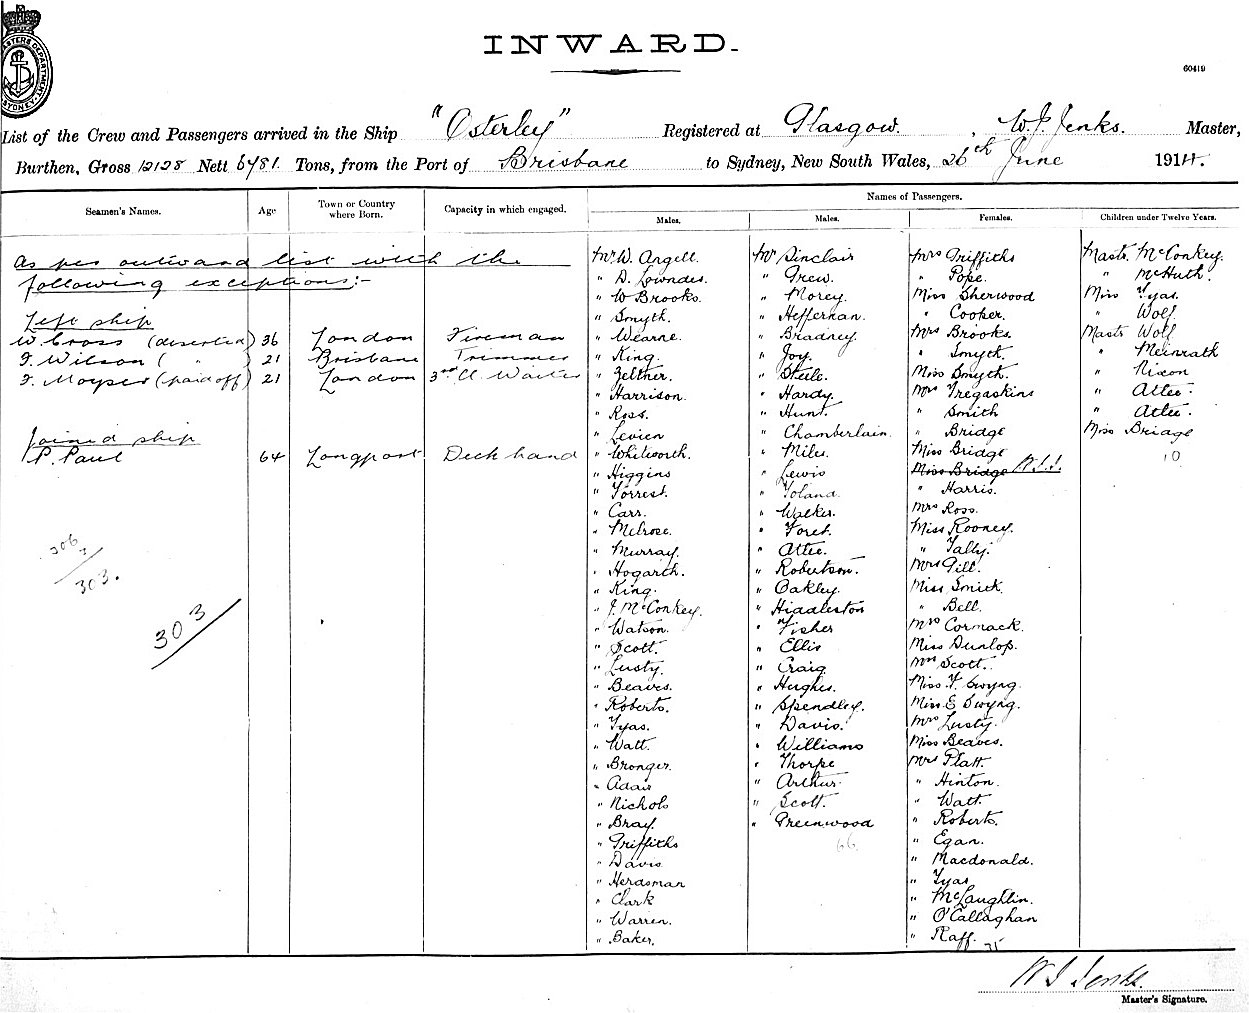 INWARD.
60419
List of the Crew and Passengers arrived in the Ship "Osterley" Registered at Glasgow. , W. J. Jenks. Master,
Burthen, Gross 12128 Nett 6781. Tons, from the Port of Brisbane to Sydney, New South Wales, 26th June 1914.
Seamen's Names. Age Town or Country where Born. Capacity in which engaged. Names of Passengers.
Males. Males. Females. Children under Twelve Years.
As per outward list with the
following exceptions:-
Left ship
W Cross (deserted) 36 London Fireman
F. Wilson ( " ) 21 Brisbane Trimmer
F. Moyser (paid off) 21 London 3rd Cl. Waiter
Joined ship
P. Paul 64 Longport Deck hand
306
3
303.
303
Mr W. Angell.
" D. Lowndes.
" W Brooks.
" Smyth.
" Wearne.
" King.
" Zeltner.
" Harrison.
" Ross.
" Levien
" Whitworth.
" Higgins
" Forrest.
" Carr.
" Melrose.
" Murray.
" Hogarth.
" King.
" J. McConkey.
" Watson.
" Scott.
" Lusty.
" Beaves.
" Roberts.
" Tyas.
" Watt.
" Bronger.
" Adair
" Nichols
" Bray.
" Griffiths
" Davis
" Herdsman
" Clark
" Warren.
" Baker.
Mr Sinclair
" Grew.
" Morey.
" Heffernan.
" Bradney.
" Joy.
" Steele.
" Hardy.
" Hunt.
" Chamberlain.
" Miles.
" Lewis
" Toland.
" Walker.
" Foret.
" Attee.
" Robertson.
" Oakley.
" Hiddleston
" Fisher
" Ellis
" Craig
" Hughes.
" Spendley.
" Davis.
" Williams
" Thorpe
" Arthur.
" Scott.
" Greenwood
66
Mrs Griffiths
" Pope.
Miss Sherwood
" Cooker.
Mrs Brooks.
" Smyth.
Miss Smyth.
Mrs Tregaskins
" Smith
" Bridge
Miss Bridge
Miss Bridge W.J.J.
" Harris.
Mrs Ross.
Miss Rooney.
" Tally.
Mrs Gill.
Miss Smith.
" Bell.
Mrs Cormack.
Miss Dunlop.
Mrs Scott.
Miss F. Swyng.
Miss E Swyng.
Mrs Lusty.
Miss Beaves.
Mrs Platt.
" Hinton.
" Watt.
" Roberts.
" Egan.
" Macdonald.
" Tyas
" McLaughlin.
" O'Callaghan
" Raff.
35
Mastr. McConkey.
" McHuth.
Miss Tyas.
" Wolf.
Mastr Wolf
" Meinrath
" Nixon
" Attee.
" Attee.
Miss Bridge
10
W J Jenks.
Master's Signature.